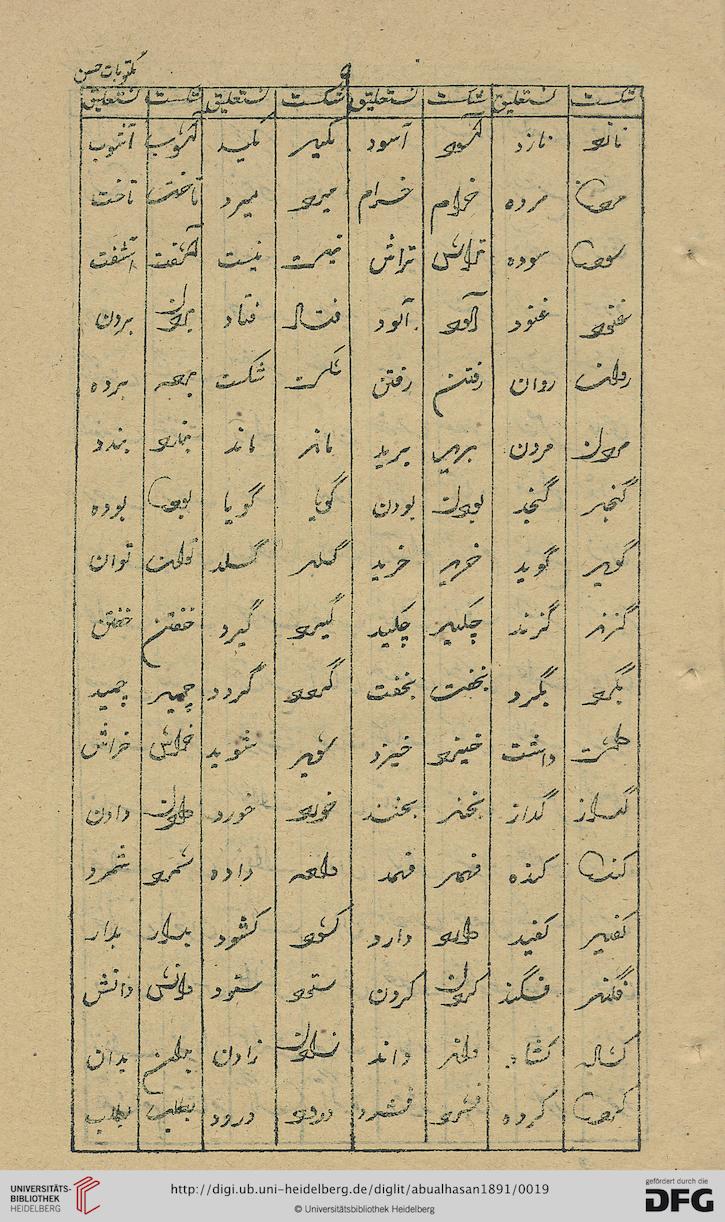 مکتوبات حسن
۹
شکست نستعلیق شکست نستعلیق شکست نستعلیق شکست نستعلیق
نازد نازد آسود آسود کلید آشوب آشوب
مرده مرده خرام خرام میرد میرد تاخت تاخت
سوده سوده تراش تراش نیست نیست آشفت آشفت
غنود غنود آلود آلود فتاد فتاد بردن بردن
روان روان رفتن رفتن شکست شکست برده برده
مردن مردن برید برید ماند ماند بندد بندد
گنجد گنجد بودن بودن گویا گویا بوده بوده
گوید گوید خرید خرید گسلد گسلد توان توان
گزند گزند چکید چکید گیرد گیرد خفتن خفتن
بگرد بگرد بخفت بخفت گردد گردد چمید چمید
داشت داشت خیزد خیزد شوید شوید خراش خراش
گداز گداز بخندد خورد خورد دادن دادن
کنده فهمد فهمد داده داده شمرد شمرد
کفید کفید دارد دارد کشود کشود بدار بدار
فگند فگند کردن کردن ستود ستود دانش دانش
کشاد کشاد داند داند زادن زادن بدان بدان
کرده کرده فشرد فشرد درود درود بطلب بطلب
UNIVERSITÄTS-
BIBLIOTHEK
HEIDELBERG
http://digi.ub.uni-heidelberg.de/diglit/abualhasan1891/0019
© Universitätsbibliothek Heidelberg
gefördert durch die
DFG